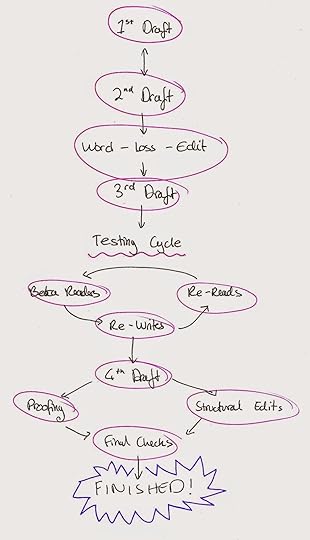 1st Draft
2nd Draft
Word - Loss - Edit
3rd Draft
Testing Cycle
Beta Readers
Re-Reads
Re-Writes
4th Draft
Proofing
Structural Edits
Final Checks
FINISHED!